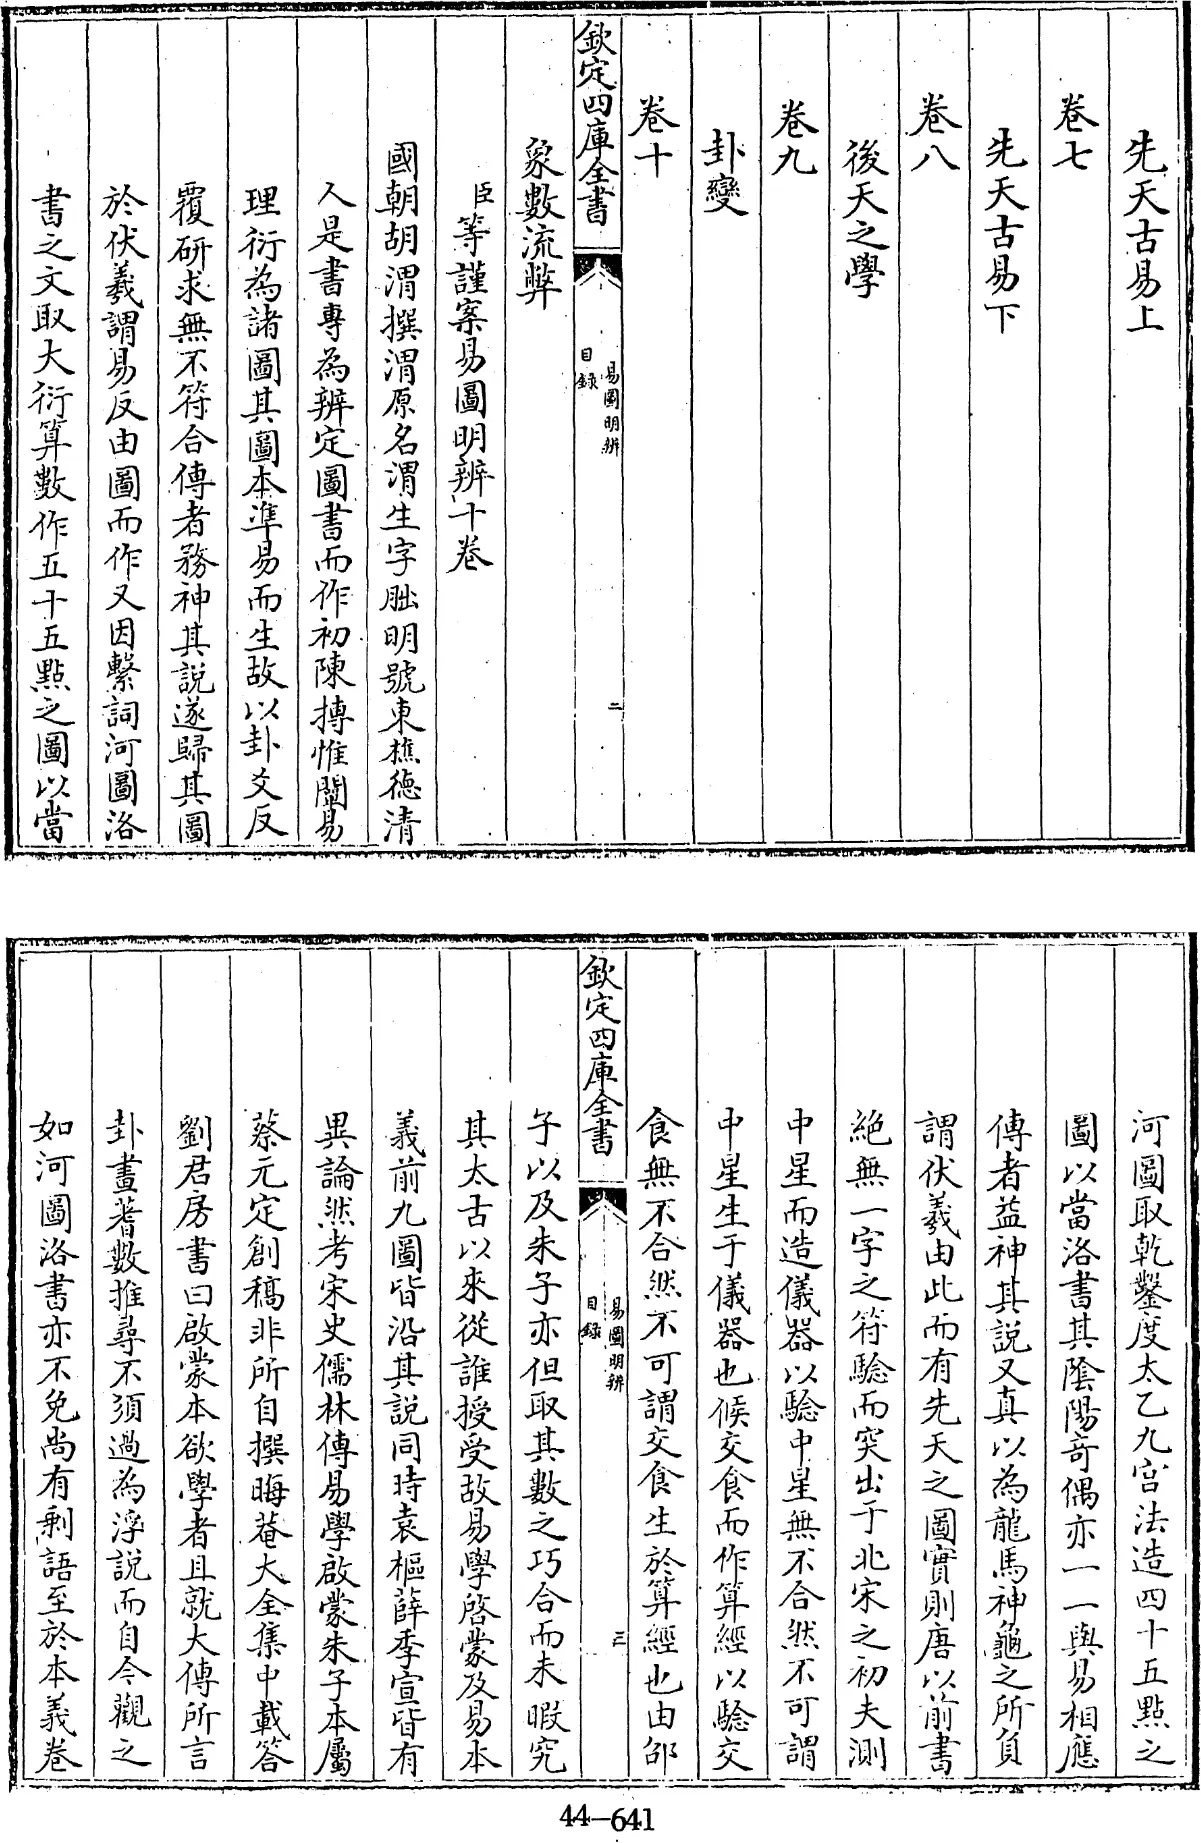 先天古易上
卷七
先天古易下
卷八
後天之學
卷九
卦變
卷十
欽定四庫全書
易圖明辨
目録
二
象數流弊
臣等謹案易圖明辨十卷
國朝胡渭撰渭原名渭生字朏明號東樵德清
人是書專為辨定圖書而作初陳摶推闡易
理衍為諸圖其圖本準易而生故以卦爻反
覆研求無不符合傳者務神其說遂歸其圖
於伏羲謂易反由圖而作又因繫詞河圖洛
書之文取大衍算數作五十五點之圖以當
河圖取乾鑿度太乙九宫法造四十五點之
圖以當洛書其陰陽奇偶亦一一與易相應
傳者益神其說又真以為龍馬神龜之所負
謂伏羲由此而有先天之圖實則唐以前書
絶無一字之符驗而突出于北宋之初夫測
中星而造儀器以驗中星無不合然不可謂
中星生于儀器也候交食而作算經以驗交
食無不合然不可謂交食生於算經也由邵
欽定四庫全書
易圖明辨
目録
三
子以及朱子亦但取其數之巧合而未暇究
其太古以來從誰授受故易學啓蒙及易本
義前九圖皆沿其說同時袁樞薛季宣皆有
異論然考宋史儒林傳易學啟蒙朱子本屬
蔡元定創稿非所自撰晦菴大全集中載答
劉君房書曰啟蒙本欲學者且就大傳所言
卦畫蓍數推尋不須過為浮說而自今觀之
如河圖洛書亦不免尚有剩語至於本義卷
44-641